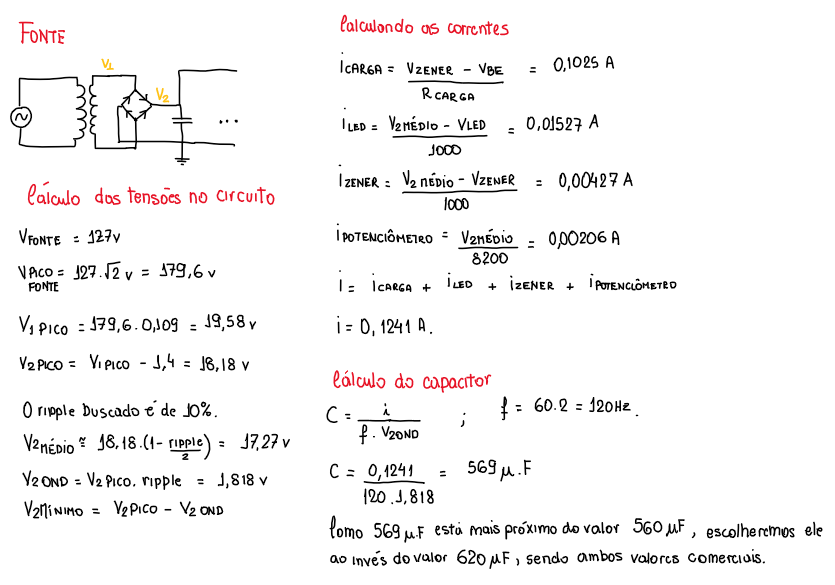 FONTE
V1
V2
...
Cálculo das tensões no circuito
VFONTE = 127v
VPICO FONTE = 127.√2 v = 179,6 v
V1 PICO = 179,6 . 0,109 = 19,58 v
V2 PICO = V1 PICO - 1,4 = 18,18 v
O ripple buscado é de 10%.
V2MÉDIO ≅ 18,18.(1- ripple/2) = 17,27 v
V2 OND = V2 PICO. ripple = 1,818 v
V2MÍNIMO = V2 PICO - V2 OND
Calculando as correntes
iCARGA = VZENER - VBE / RCARGA = 0,1025 A
iLED = V2MÉDIO - VLED / 1000 = 0,01527 A
iZENER = V2MÉDIO - VZENER / 1000 = 0,00427 A
iPOTENCIÔMETRO = V2MÉDIO / 8200 = 0,00206 A
i = iCARGA + iLED + iZENER + iPOTENCIÔMETRO
i = 0,1241 A.
Cálculo do capacitor
C = i / f . V2OND ; f = 60.2 = 120Hz.
C = 0,1241 / 120 . 1,818 = 569 μ.F
Como 569 μ.F está mais próximo do valor 560 μF, escolheremos ele
ao invés do valor 620 μF, sendo ambos valores comerciais.